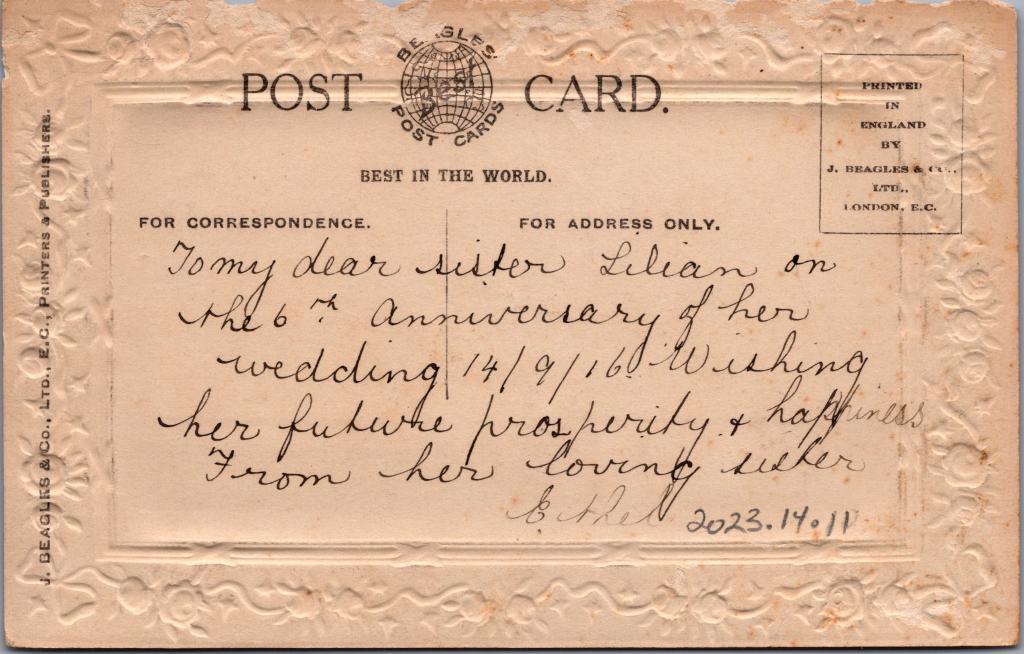 BEAGLES'
Best
POST CARDS
POST CARD.
BEST IN THE WORLD.
PRINTED
IN
ENGLAND
BY
J. BEAGLES & CO.,
LTD.,
LONDON, E.C.
J. BEAGLES & CO., LTD., E.C., PRINTERS & PUBLISHERS.
FOR CORRESPONDENCE.
FOR ADDRESS ONLY.
To my dear sister Lilian on
the 6th Anniversary of her
wedding 14/9/16. Wishing
her future prosperity & happiness
From her loving sister
Ethel
2023.14.11